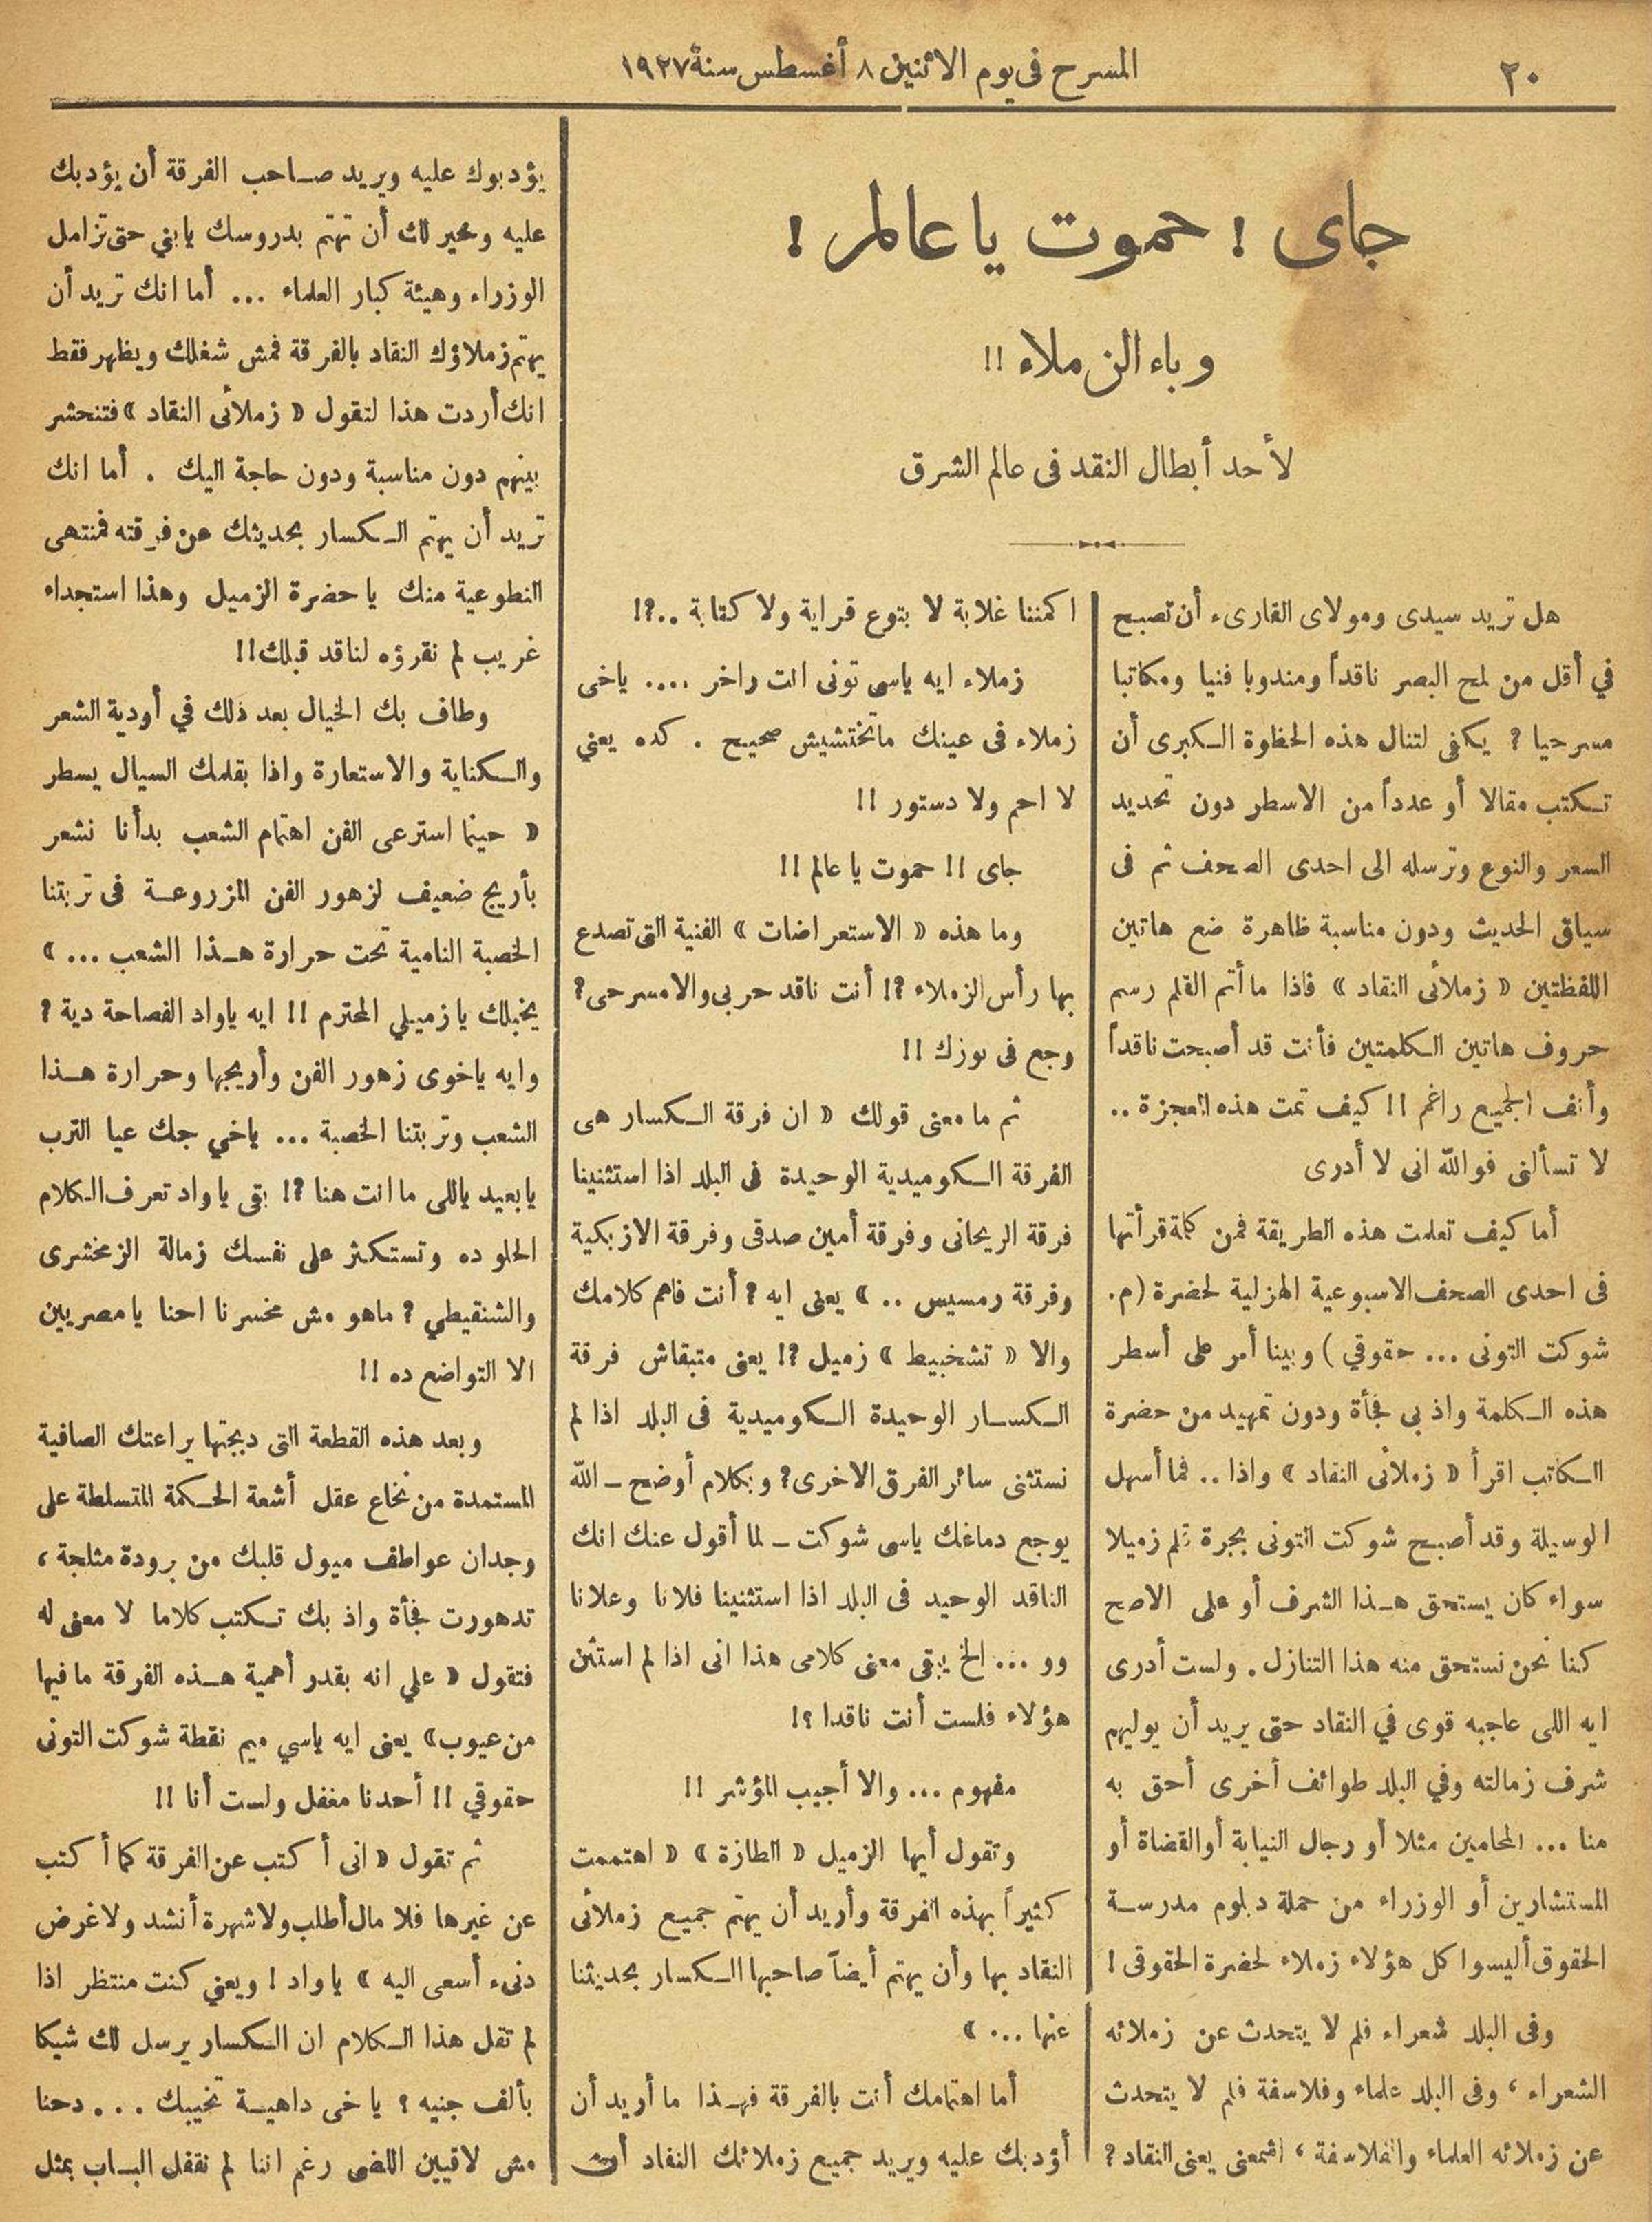 ٢٠
المسرح فى يوم الاثنين ٨ أغسطس سنة ١٩٢٧
جاى ! حموت يا عالم !
وباء الزملاء !!
لأحد أبطال النقد فى عالم الشرق
هل تريد سيدى ومولاى القارىء أن تصبح
في أقل من لمح البصر ناقداً ومندوبا فنيا ومكاتبا
مسرحيا ؟ يكفى لتنال هذه الحظوة الكبرى أن
تكتب مقالا أو عدداً من الاسطر دون تحديد
السعر والنوع وترسله الى احدى الصحف ثم فى
سياق الحديث ودون مناسبة ظاهرة ضع هاتين
اللفظتين « زملائى النقاد » فاذا ما أتم القلم رسم
حروف هاتين الكلمتين فأنت قد أصبحت ناقداً
وأنف الجميع راغم !! كيف تمت هذه المعجزة ..
لا تسألنى فوالله انى لا أدرى
أما كيف تعلمت هذه الطريقة فمن كلمة قرأتها
فى احدى الصحف الاسبوعية الهزلية لحضرة ( م.
شوكت التونى ... حقوقي ) وبينا أمر على أسطر
هذه الكلمة واذ بى فجأة ودون تمهيد من حضرة
الكاتب اقرأ « زملائى النقاد » واذا .. فما أسهل
الوسيلة وقد أصبح شوكت التونى بجرة قلم زميلا
سواء كان يستحق هذا الشرف أو على الاصح
كنا نحن نستحق منه هذا التنازل . ولست أدرى
ايه اللى عاجبه قوى في النقاد حتى يريد أن يوليهم
شرف زمالته وفي البلد طوائف أخرى أحق به
منا ... المحامين مثلا أو رجال النيابة أو القضاة أو
المستشارين أو الوزراء من حملة دبلوم مدرسة
الحقوق أليسوا كل هؤلاء زملاء لحضرة الحقوقى !
وفى البلد شعراء فلم لا يتحدث عن زملائه
الشعراء ، وفى البلد علماء وفلاسفة فلم لا يتحدث
عن زملائه العلماء والفلاسفة ، اشمعنى يعنى النقاد ؟
اكمننا غلابة لا بتوع قراية ولا كتابة ..؟!
زملاء ايه ياسى تونى انت راخر .... ياخى
زملاء فى عينك ماتختشيش صحيح . كده يعني
لا احم ولا دستور !!
جاى !! حموت يا عالم !!
وما هذه « الاستعراضات » الفنية التى تصدع
بها رأس الزملاء ؟! أنت ناقد حربى والا مسرحى ؟
وجع فى بوزك !!
ثم ما معنى قولك « ان فرقة الكسار هى
الفرقة الكوميدية الوحيدة فى البلد اذا استثنينا
فرقة الريحانى وفرقة أمين صدقى وفرقة الازبكية
وفرقة رمسيس .. » يعنى ايه ؟ أنت فاهم كلامك
والا « تشخبيط » زميل ؟! يعنى متبقاش فرقة
الكسار الوحيدة الكوميدية فى البلد اذا لم
نستثنى سائر الفرق الاخرى ؟ وبكلام أوضح ـ الله
يوجع دماغك ياسى شوكت ـ لما أقول عنك انك
الناقد الوحيد فى البلد اذا استثنينا فلانا وعلانا
وو ... الخ يبقى معنى كلامى هذا انى اذا لم استثن
هؤلاء فلست أنت ناقدا ؟!
مفهوم ... والا أجيب المؤشر !!
وتقول أيها الزميل « الطازة » « اهتممت
كثيراً بهذه الفرقة وأريد أن يهتم جميع زملائى
النقاد بها وأن يهتم أيضاً صاحبها الكسار بحديثنا
عنها ... »
أما اهتمامك أنت بالفرقة فهذا ما أريد أن
أؤدبك عليه ويريد جميع زملائك النقاد أن
يؤدبوك عليه ويريد صاحب الفرقة أن يؤدبك
عليه وخير لك أن تهتم بدروسك يابني حتى تزامل
الوزراء وهيئة كبار العلماء ... أما انك تريد أن
يهتم زملاؤك النقاد بالفرقة فمش شغلك ويظهر فقط
انك أردت هذا لتقول « زملائى النقاد » فتنحشر
بينهم دون مناسبة ودون حاجة اليك . أما انك
تريد أن يهتم الكسار بحديثك عن فرقته فمنتهى
النطوعية منك يا حضرة الزميل وهذا استجداء
غريب لم نقرؤه لناقد قبلك !!
وطاف بك الخيال بعد ذلك في أودية الشعر
والكناية والاستعارة واذا بقلمك السيال يسطر
« حينما استرعى الفن اهتمام الشعب بدأنا نشعر
بأريج ضعيف لزهور الفن المزروعة فى تربتنا
الخصبة النامية تحت حرارة هذا الشعب ... »
يخيبلك يا زميلي المحترم !! ايه ياواد الفصاحة دية ؟
وايه ياخوى زهور الفن وأريجها وحرارة هذا
الشعب وتربتنا الخصبة ... ياخي جك عيا الترب
يابعيد ياللى ما انت هنا ؟! بقى ياواد تعرف الكلام
الحلو ده وتستكثر على نفسك زمالة الزمخشرى
والشنقيطي ؟ ماهو مش مخسرنا احنا يا مصريين
الا التواضع ده !!
وبعد هذه القطعة التى دبجتها يراعتك الصافية
المستمدة من نخاع عقل أشعة الحكمة المتسلطة على
وجدان عواطف ميول قلبك من برودة مثلجة ،
تدهورت فجأة واذ بك تكتب كلاما لا معنى له
فتقول « علي انه بقدر أهمية هذه الفرقة ما فيها
من عيوب » يعنى ايه ياسي ميم نقطة شوكت التونى
حقوقي !! أحدنا مغفل ولست أنا !!
ثم تقول « انى أكتب عن الفرقة كما أكتب
عن غيرها فلا مال أطلب ولا شهرة أنشد ولا غرض
دنىء أسعى اليه » ياواد ! ويعني كنت منتظر اذا
لم تقل هذا الكلام ان الكسار يرسل لك شيكا
بألف جنيه ؟ ياخى داهية تخيبك ... دحنا
مش لاقيين اللضى رغم اننا لم نقفل الباب بمثل